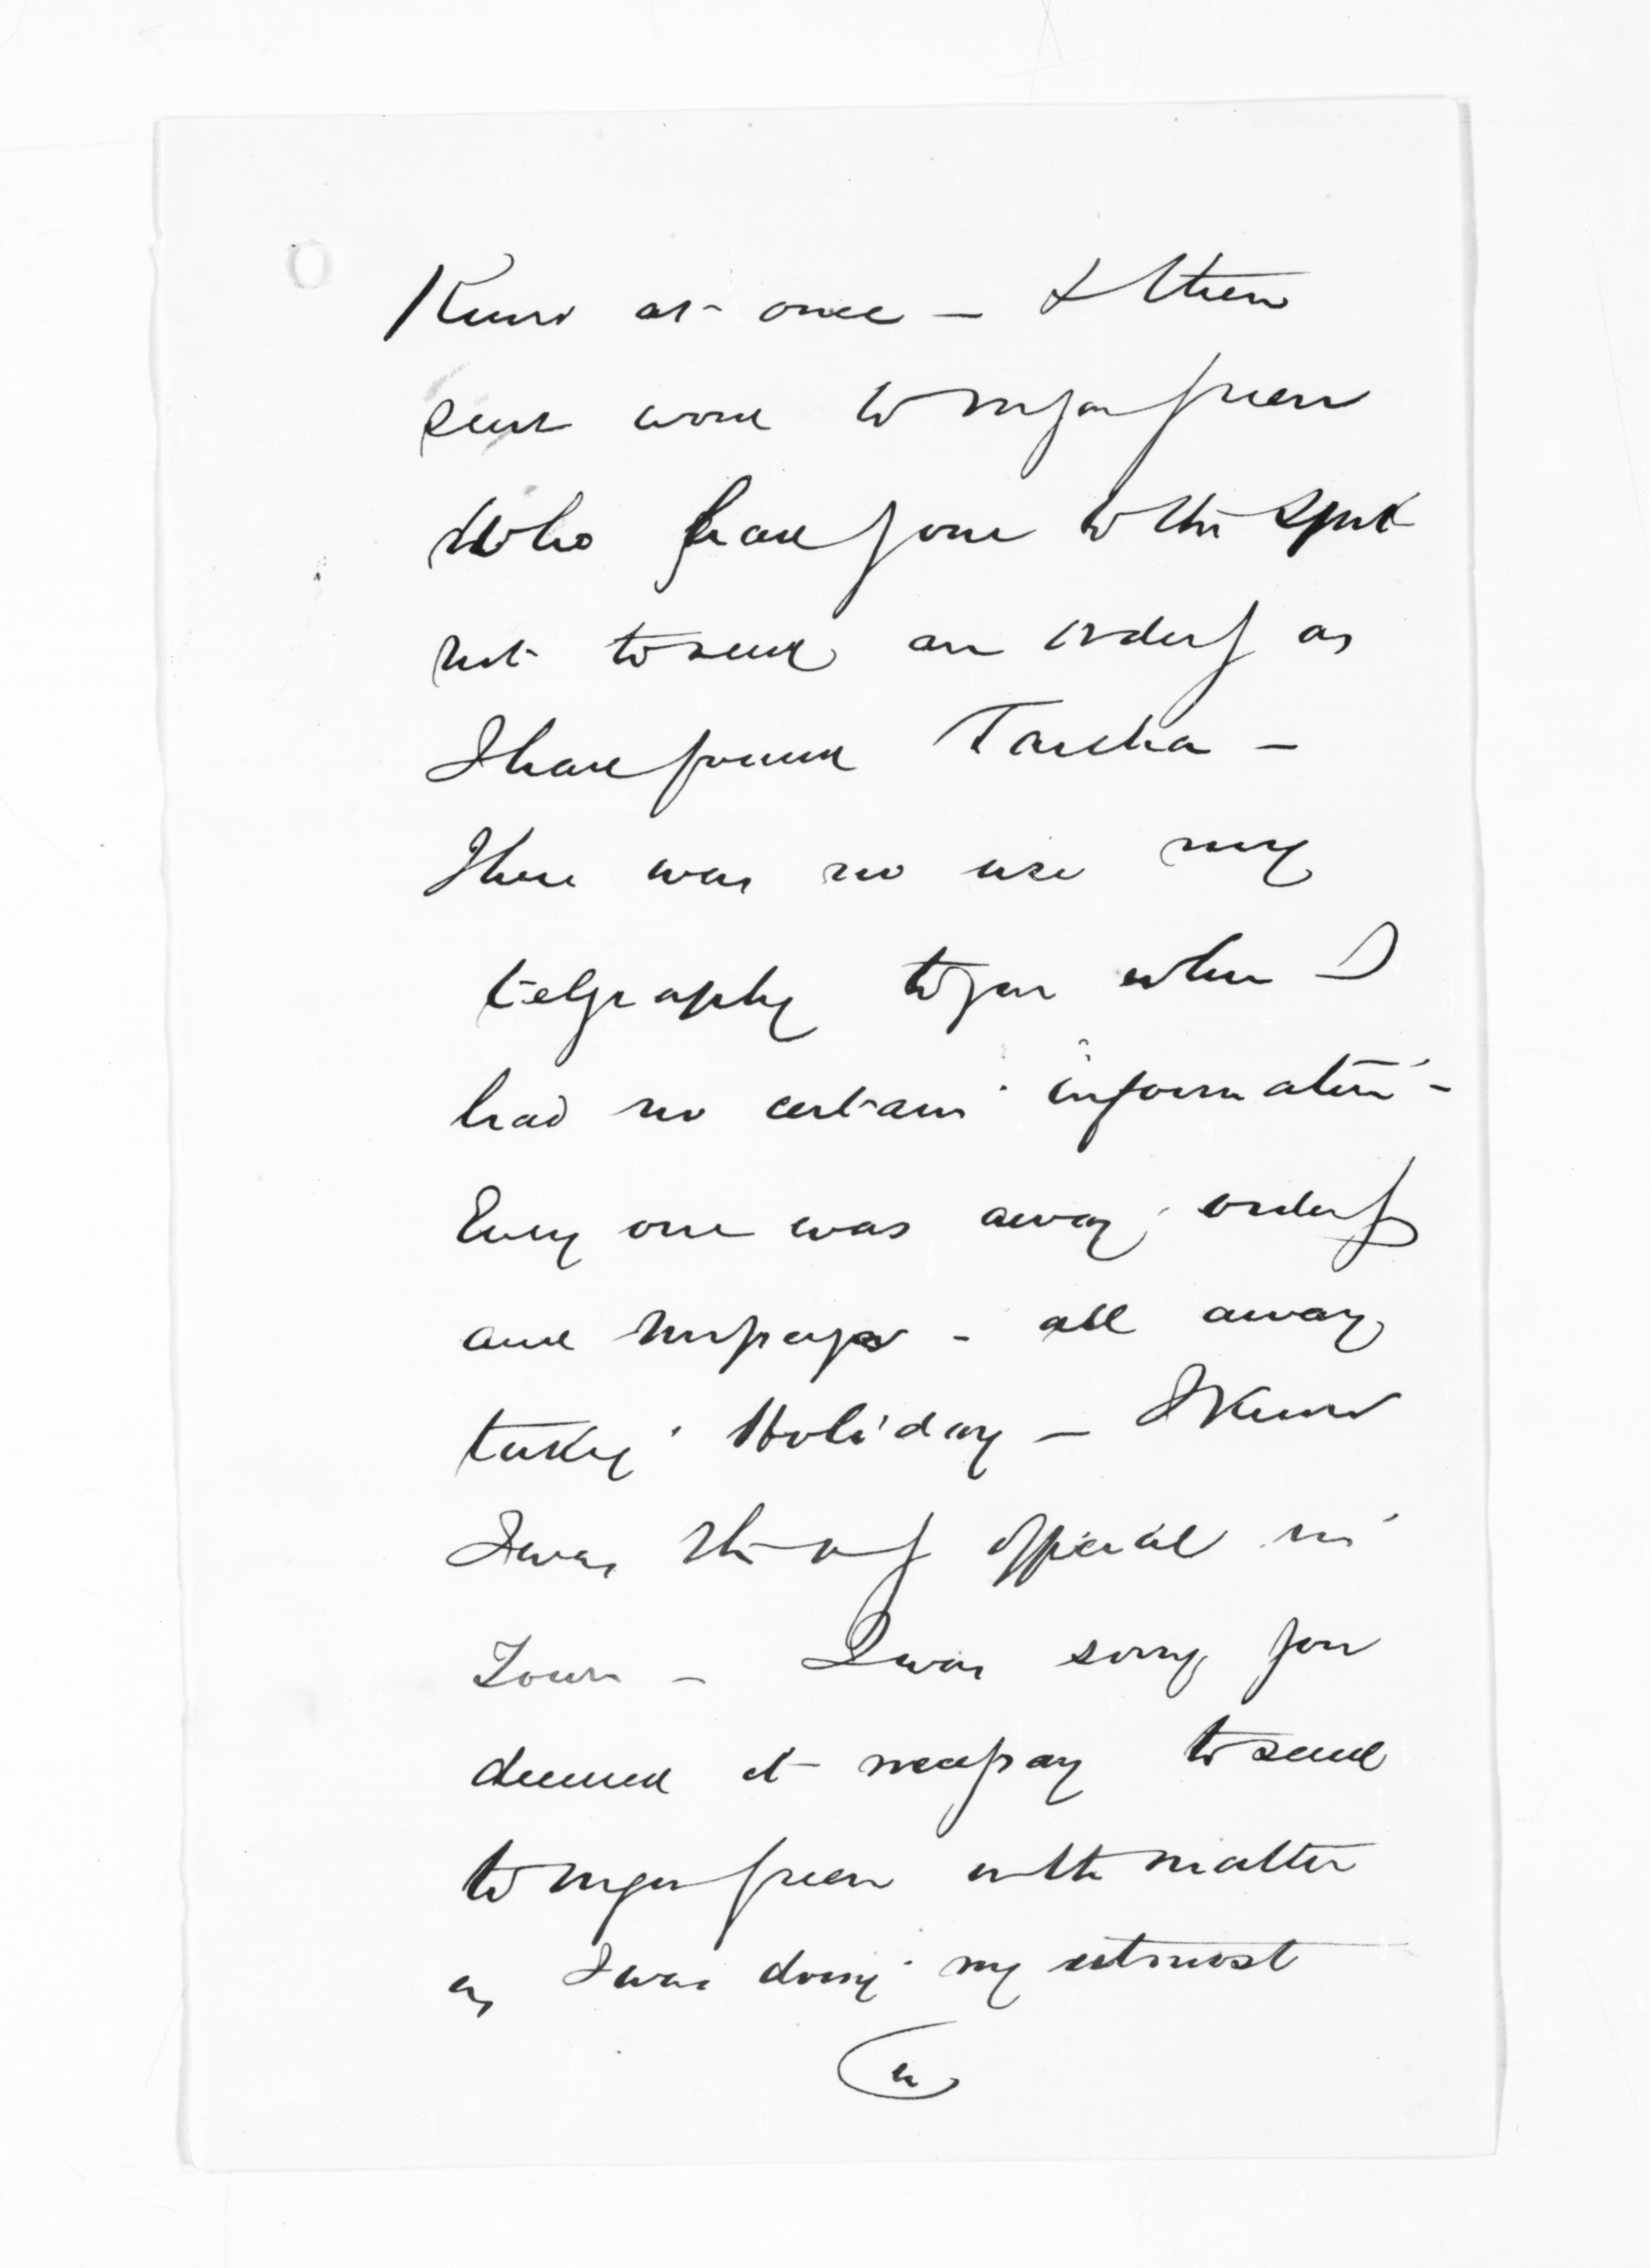 Know at once — & then
sent word to Major Green
who had gone to the spot
not to send an orderly as
I have found Tascha —
There was no use my
telegraphg to you when I
had no certain information —
Every one was away, orderly
and - all away
taking Holiday — I knew
I was the only official in
Town — I was sorry you
deemed it necessary to send
to Major Green in the matter
as I was doing my utmost